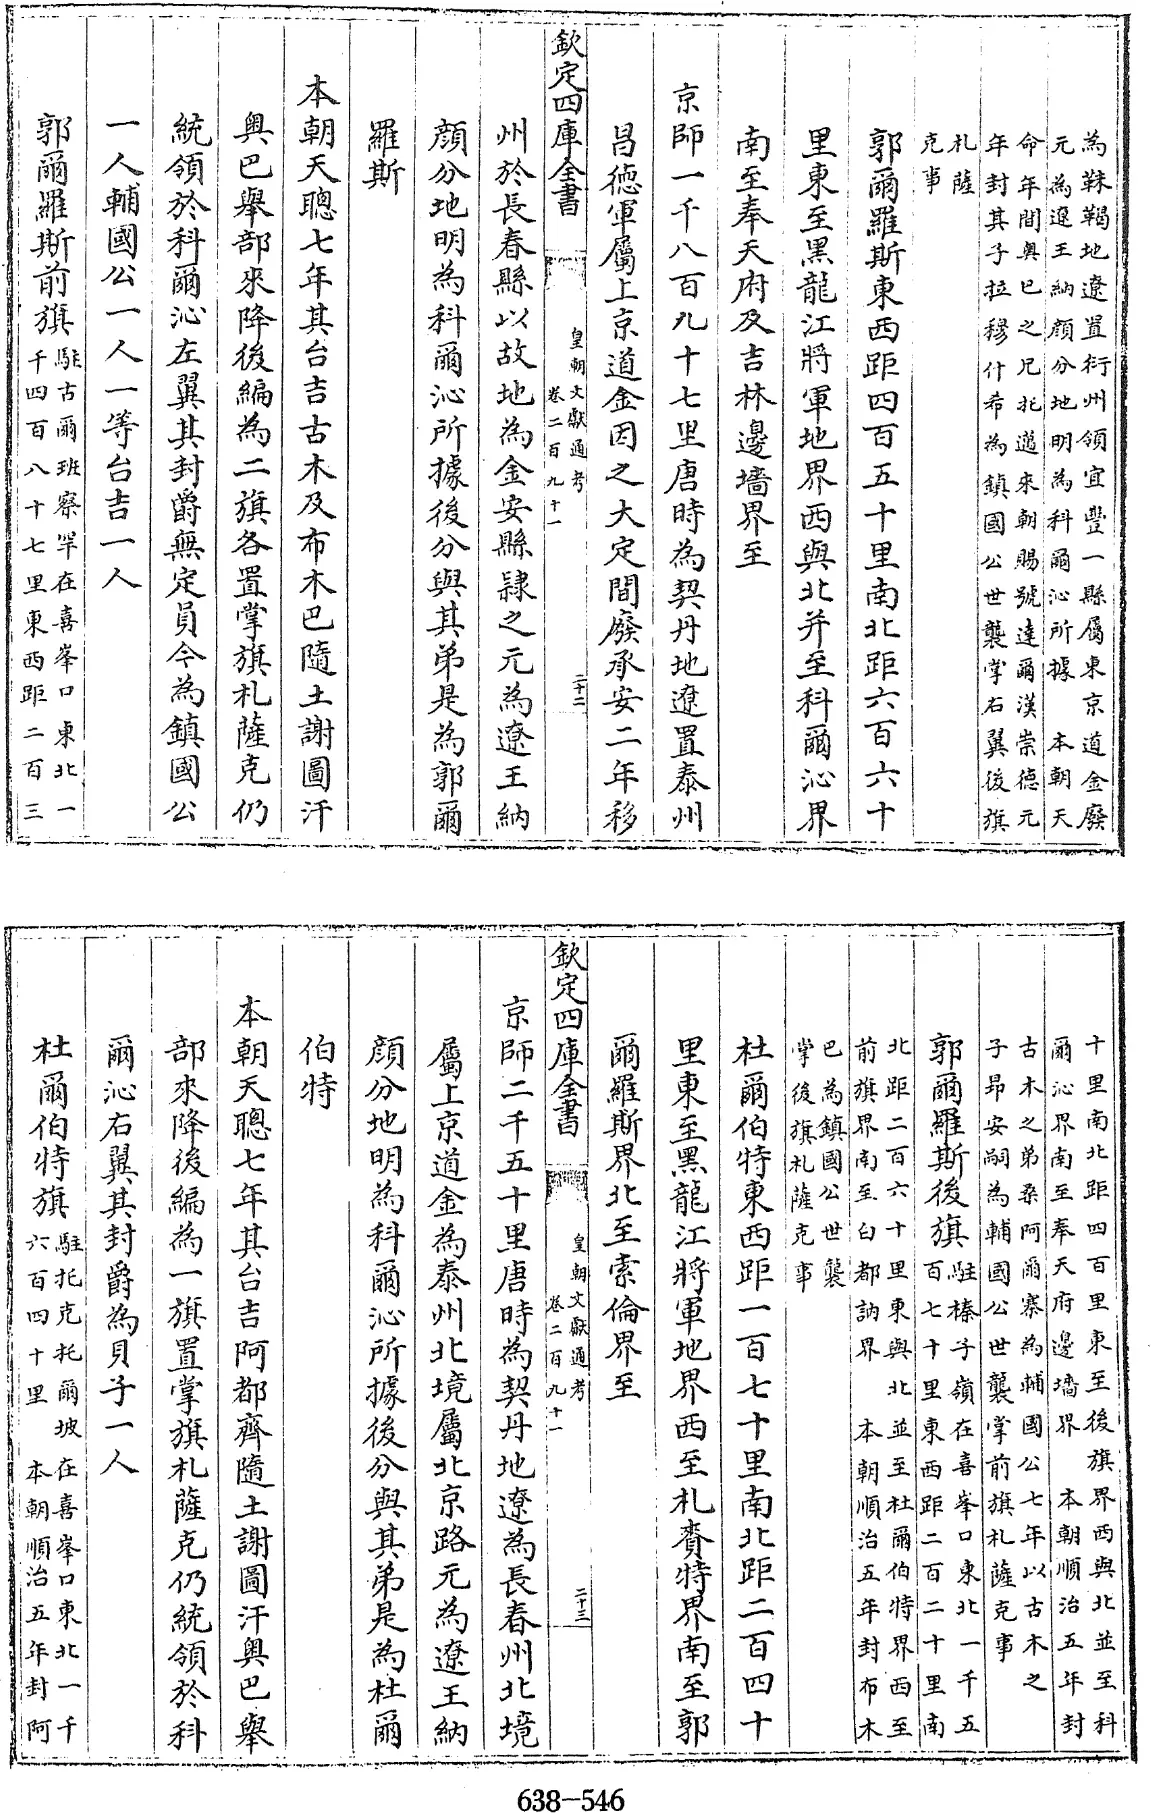 為靺鞨地遼置衍州領宜豐一縣屬東京道金廢
元為遼王納顏分地明為科爾沁所據 本朝天
命年間奥巴之兄托邁來朝賜號達爾漢崇德元
年封其子拉穆什希為鎮國公世襲掌右翼後旗
札薩
克事
郭爾羅斯東西距四百五十里南北距六百六十
里東至黑龍江將軍地界西與北并至科爾沁界
南至奉天府及吉林邊墻界至
京師一千八百九十七里唐時為契丹地遼置泰州
昌德軍屬上京道金因之大定間廢承安二年移
欽定四庫全書
皇朝文獻通考
卷二百九十一
二十二
州於長春縣以故地為金安縣隷之元為遼王納
顏分地明為科爾沁所據後分與其弟是為郭爾
羅斯
本朝天聰七年其台吉古木及布木巴隨土謝圖汗
奥巴舉部來降後編為二旗各置掌旗札薩克仍
統領於科爾沁左翼其封爵無定員今為鎮國公
一人輔國公一人一等台吉一人
郭爾羅斯前旗
駐古爾班察罕在喜峯口東北一
千四百八十七里東西距二百三
十里南北距四百里東至後旗界西與北並至科
爾沁界南至奉天府邊墻界 本朝順治五年封
古木之弟桑阿爾寨為輔國公七年以古木之
子昂安嗣為輔國公世襲掌前旗札薩克事
郭爾羅斯後旗
駐榛子嶺在喜峯口東北一千五
百七十里東西距二百二十里南
北距二百六十里東與北並至杜爾伯特界西至
前旗界南至白都訥界 本朝順治五年封布木
巴為鎮國公世襲
掌後旗札薩克事
杜爾伯特東西距一百七十里南北距二百四十
里東至黑龍江將軍地界西至札賚特界南至郭
爾羅斯界北至索倫界至
欽定四庫全書
皇朝文獻通考
卷二百九十一
二十三
京師二千五十里唐時為契丹地遼為長春州北境
屬上京道金為泰州北境屬北京路元為遼王納
顏分地明為科爾沁所據後分與其弟是為杜爾
伯特
本朝天聰七年其台吉阿都齊隨土謝圖汗奥巴舉
部來降後編為一旗置掌旗札薩克仍統領於科
爾沁右翼其封爵為貝子一人
杜爾伯特旗
駐托克托爾坡在喜峯口東北一千
六百四十里 本朝順治五年封阿
638-546